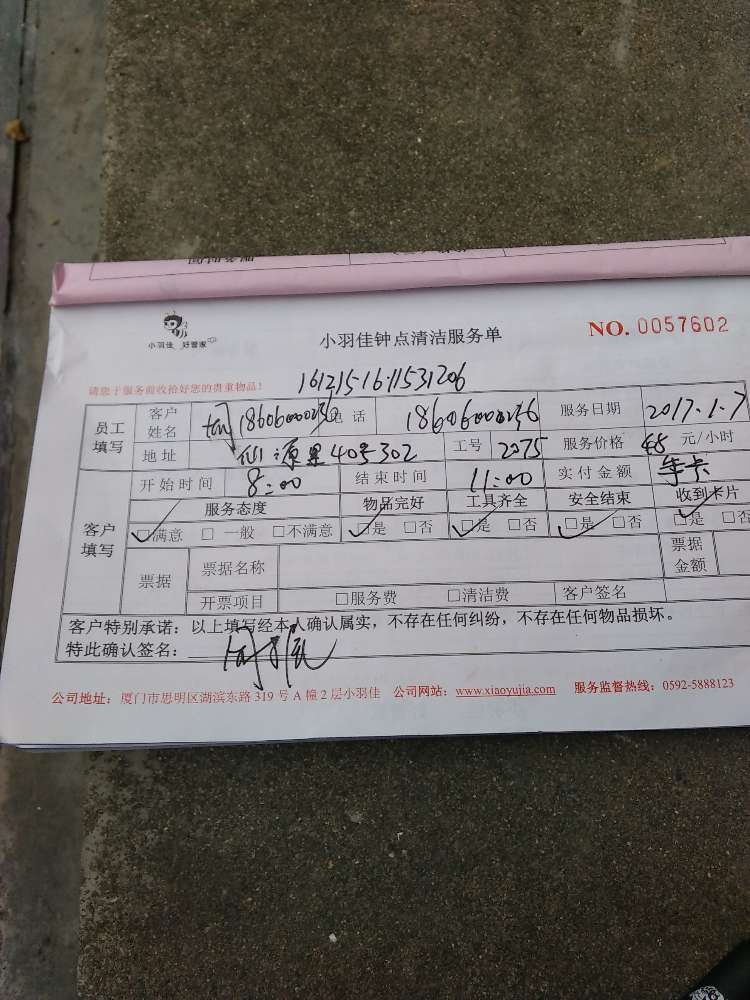 小羽佳 好管家
小羽佳钟点清洁服务单
NO. 0057602
请您于服务前收拾好您的贵重物品!
员工填写 客户姓名 电话 18606000236 服务日期 2017.1.7
地址 40号302 工号 2075 服务价格 48 元/小时
客户填写 开始时间 8:00 结束时间 11:00 实付金额 年卡
服务态度 物品完好 工具齐全 安全结束 收到卡片
☑满意 □一般 □不满意 ☑是 □否 ☑是 □否 ☑是 □否 ☑是 □否
票据 票据名称 票据金额
开票项目 □服务费 □清洁费 客户签名
客户特别承诺:以上填写经本人确认属实,不存在任何纠纷,不存在任何物品损坏。
特此确认签名:
公司地址:厦门市思明区湖滨东路 319 号 A 幢 2 层小羽佳 公司网站:www.xiaoyujia.com 服务监督热线:0592-5888123